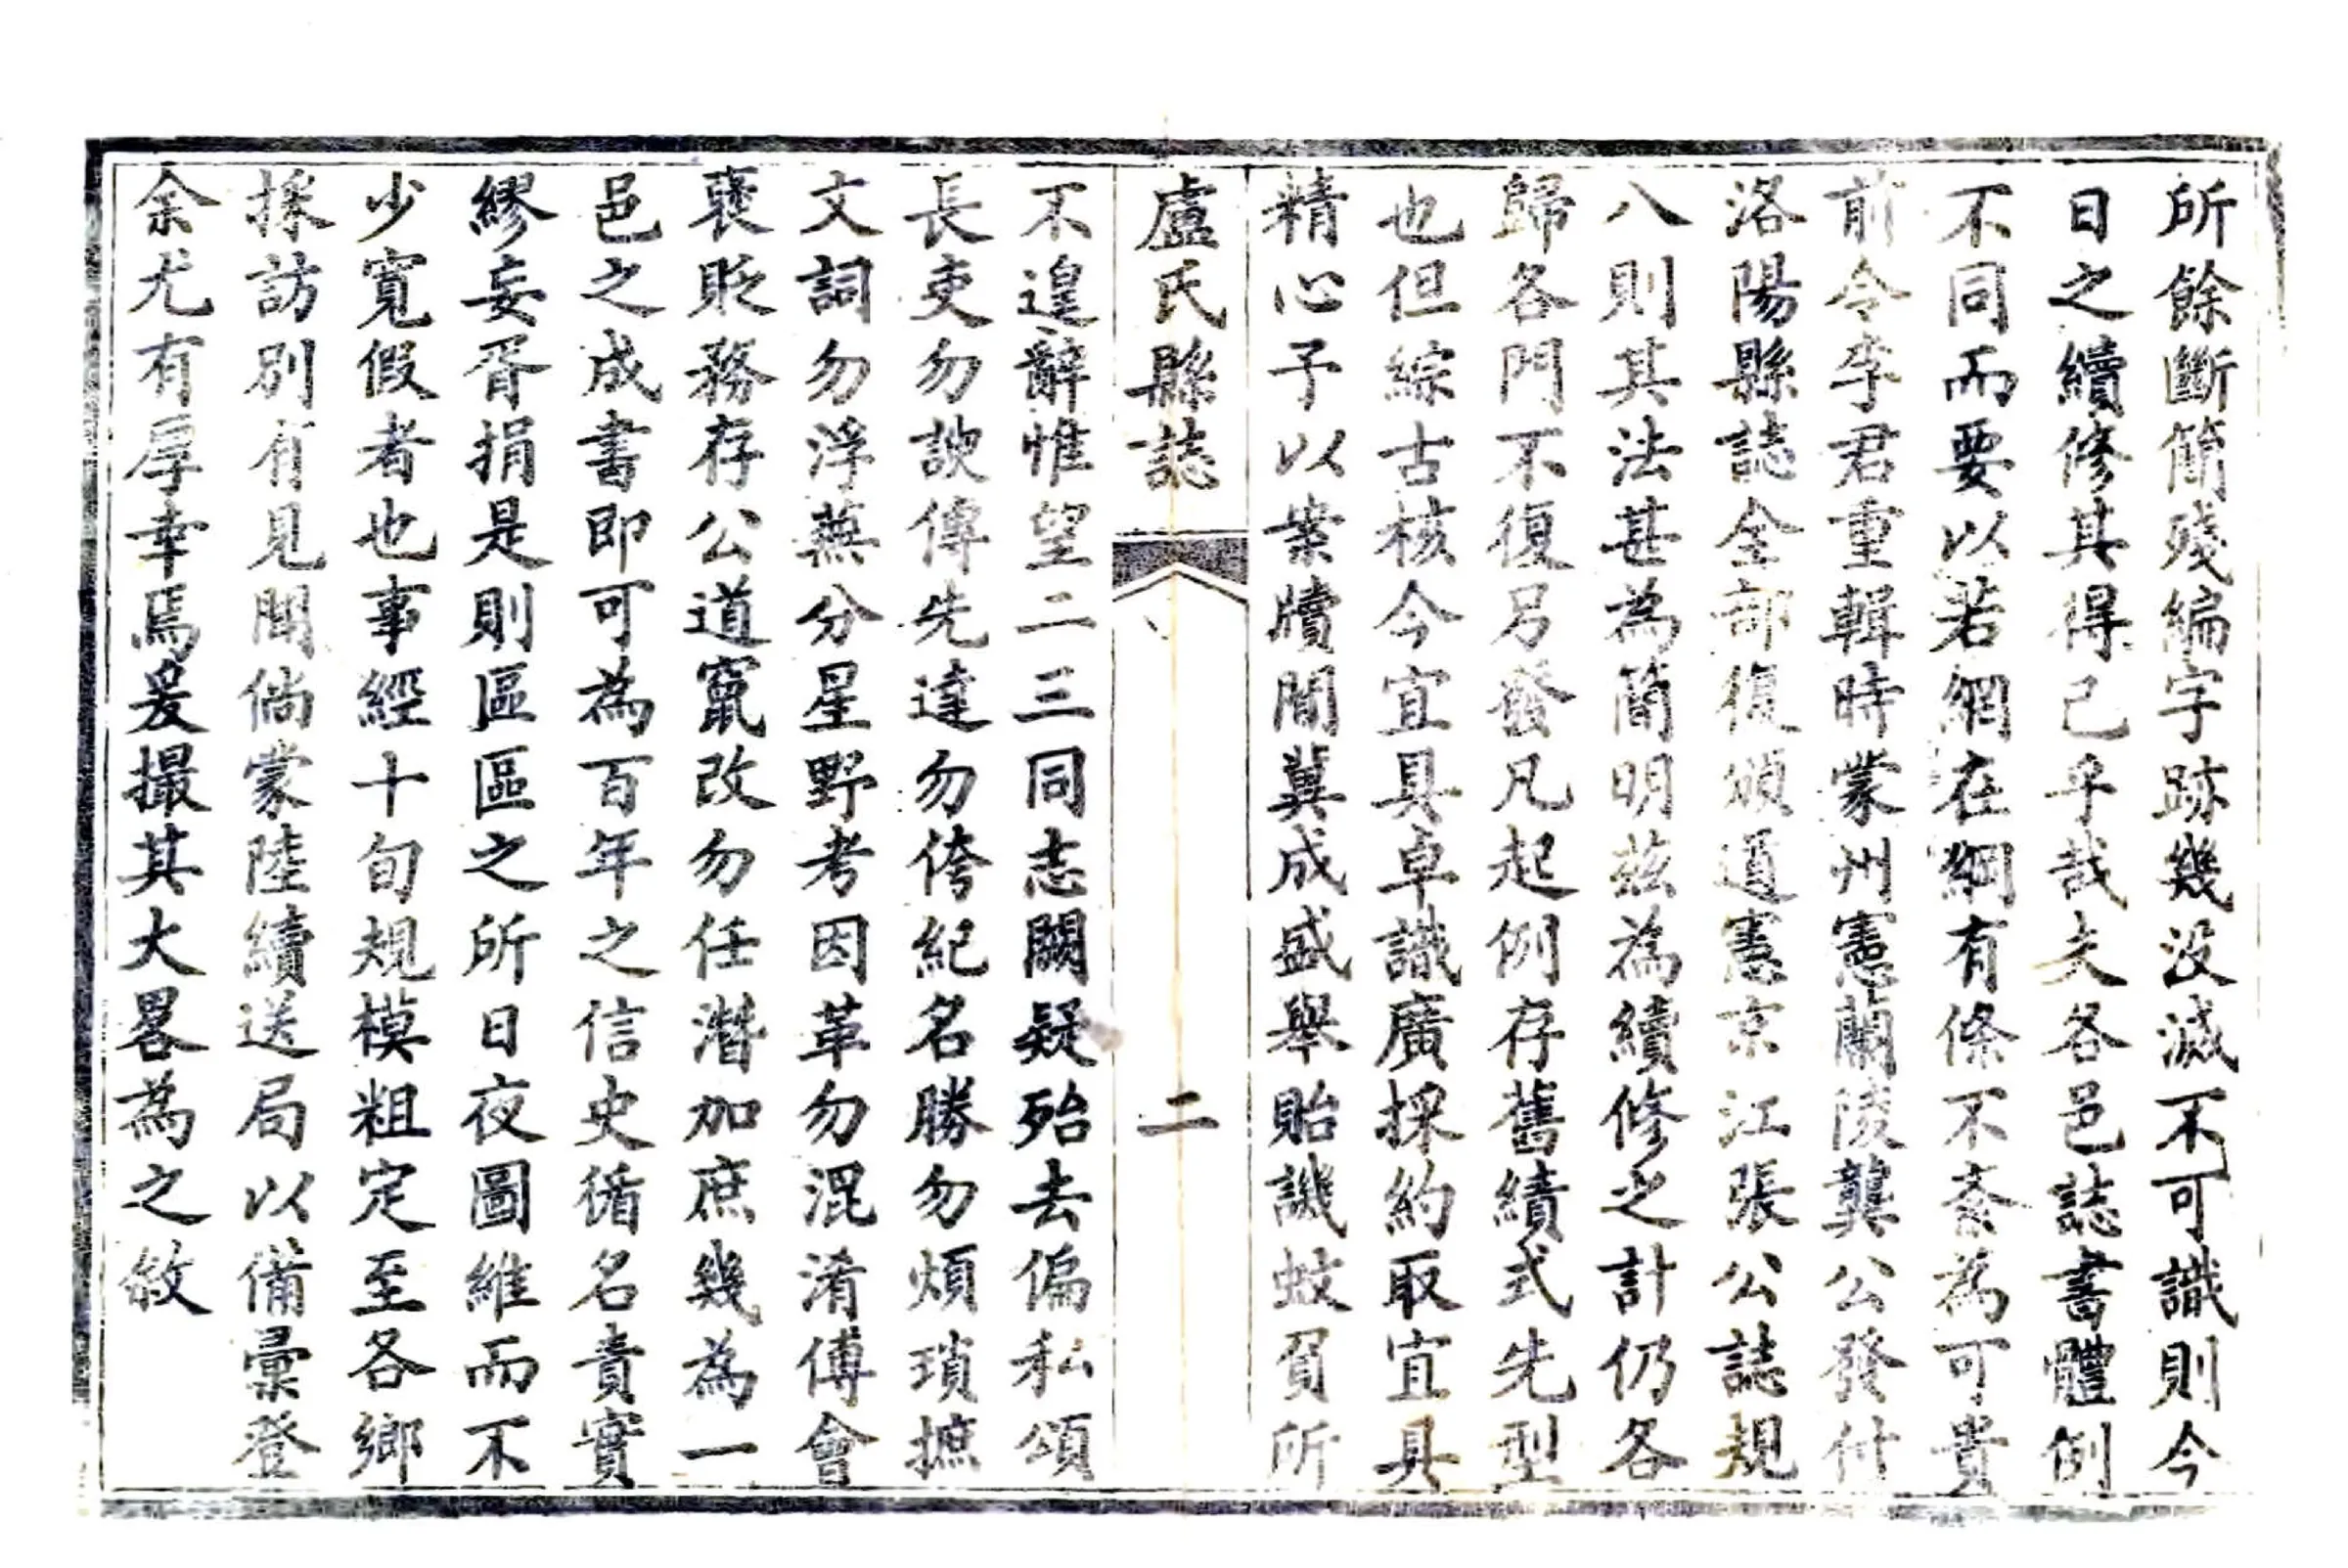 所餘斷簡殘編字跡幾沒滅不可識則今
日之續修其得已乎哉夫各邑誌書體例
不同而要以若網在綱有條不紊為可貴
前令李君重輯時蒙州憲蘭陵龔公發付
洛陽縣誌全部復頒道憲京江張公誌規
八則其法甚為簡明茲為續修之計仍各
歸各門不復另發凡起例存舊績式先型
也但綜古核今宜具卓識廣採約取宜具
精心予以案牘閒冀成盛舉貽譏蚊負所
盧氏縣誌
二
不遑辭惟望二三同志闕疑殆去偏私頌
長吏勿諛傳先達勿侉紀名勝勿煩瑣摭
文詞勿浮蕪分星野考因革勿混淆傅會
褒貶務存公道竄改勿任潛加庶幾為一
邑之成書即可為百年之信史循名責實
繆妄胥捐是則區區之所日夜圖維而不
少寬假者也事經十旬規模粗定至各鄉
採訪別有見聞倘蒙陸續送局以備彙登
余尤有厚幸焉爰撮其大畧為之敘